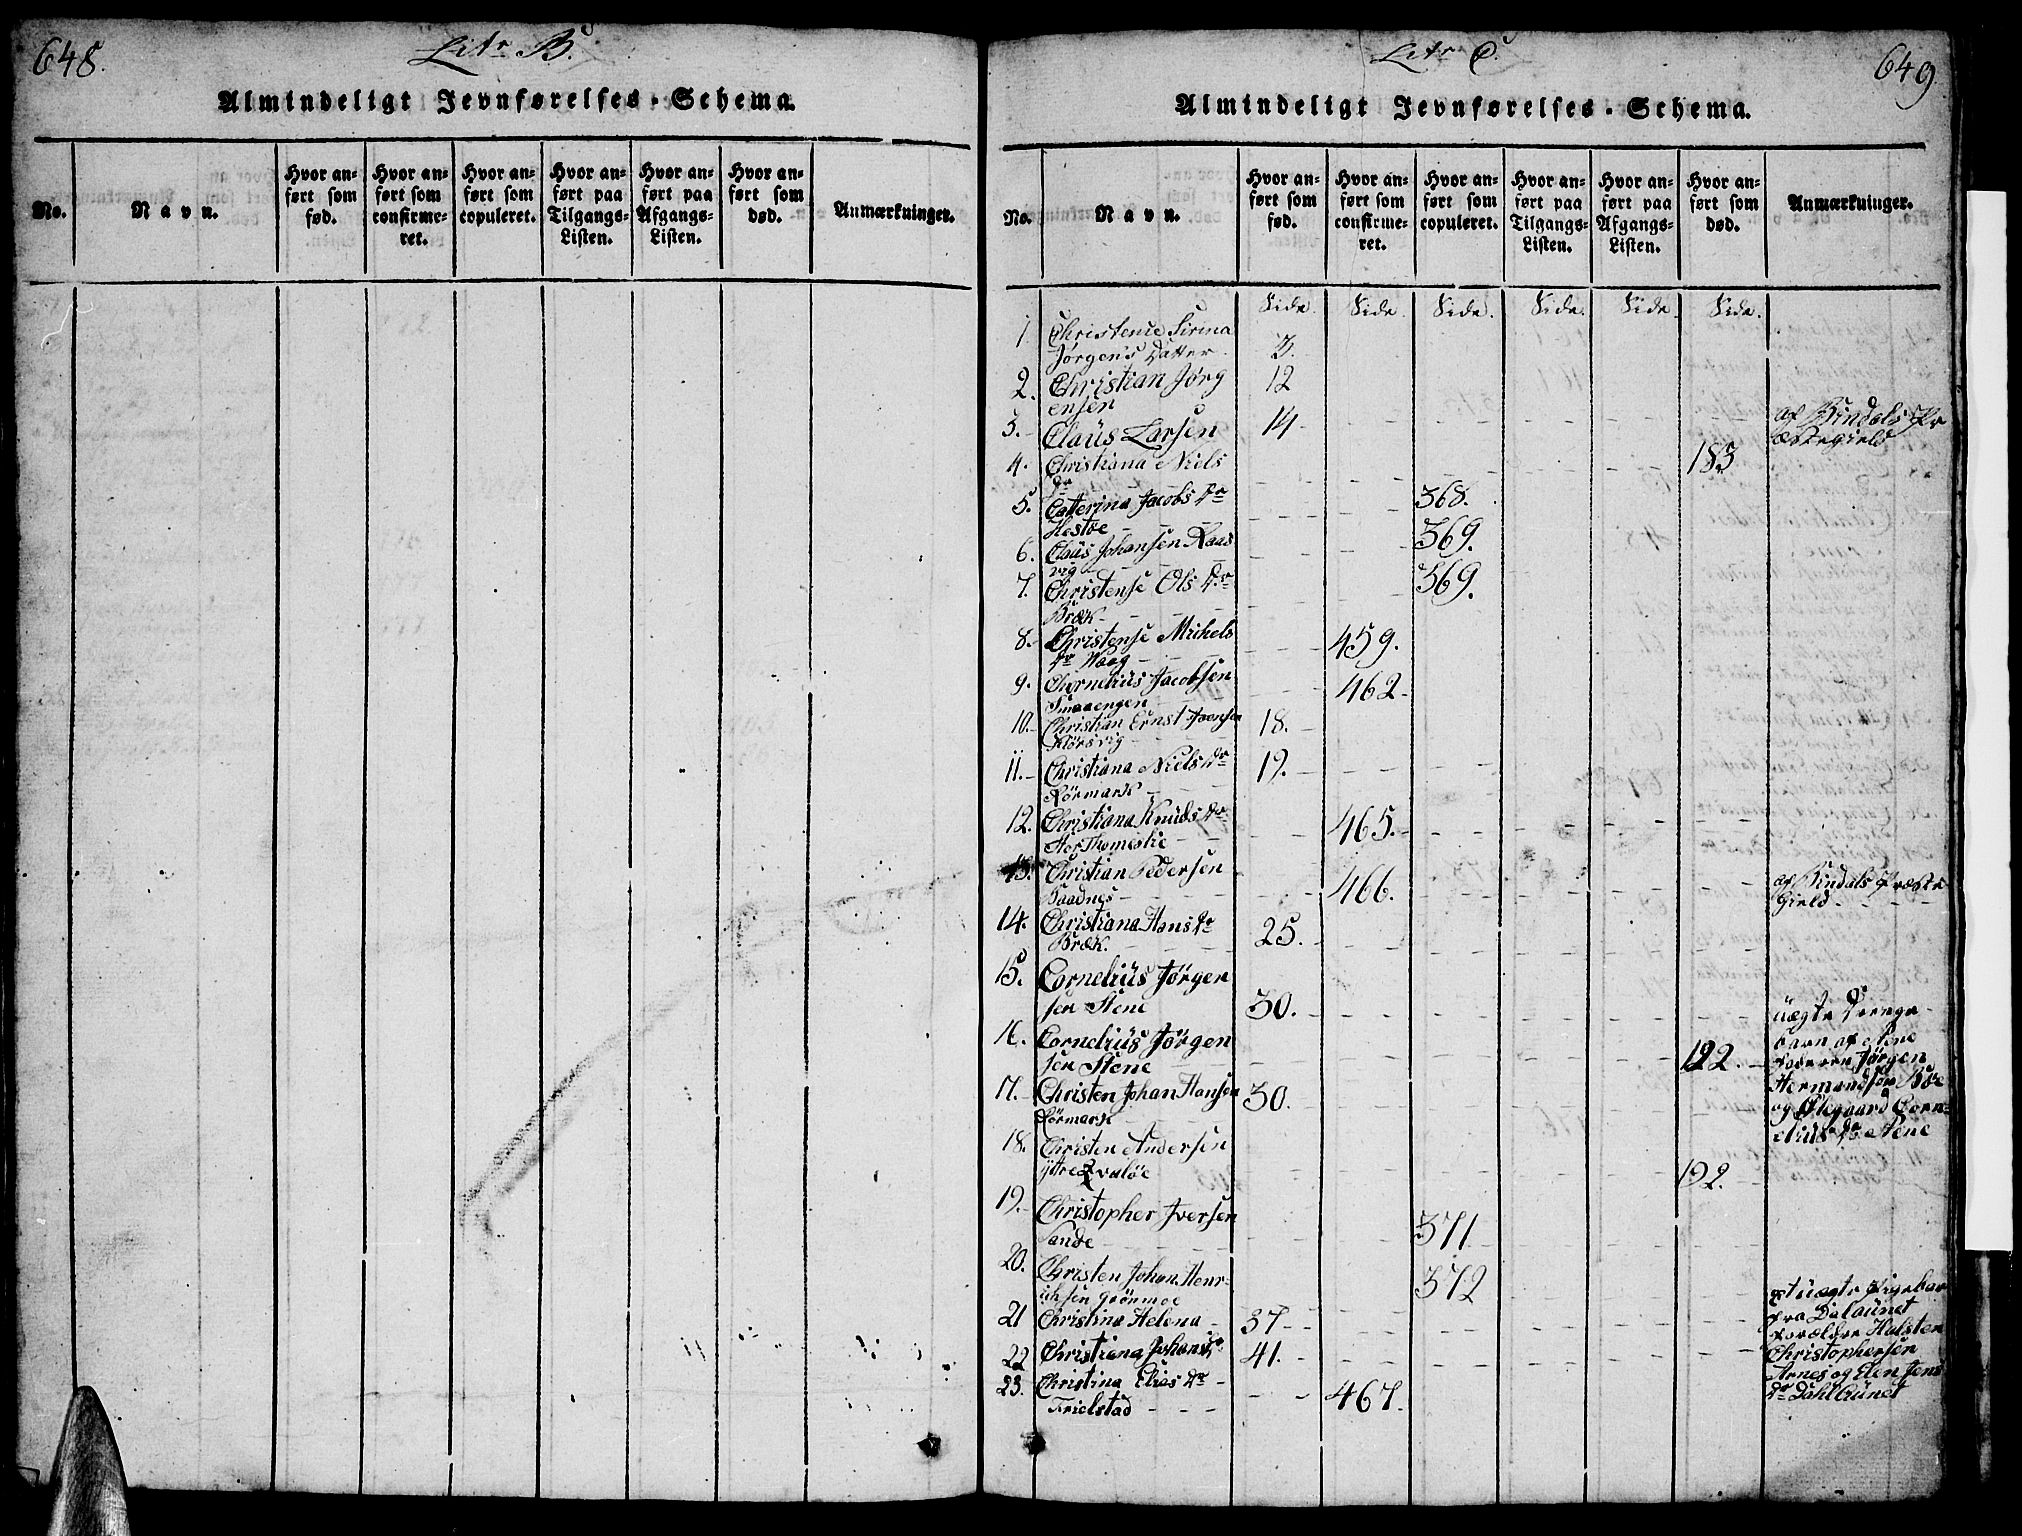 648.
Litr B.
Almindeligt Jevnførelses-Schema.
No.
Navn.
Hvor anført som fød.
Hvor anført som confirmeret.
Hvor anført som copuleret.
Hvor anført paa Tilgangs-Listen.
Hvor anført paa Afgangs-Listen.
Hvor anført som død.
Anmærkninger.
Litr C.
649
Almindeligt Jevnførelses-Schema.
No.
Navn.
Hvor anført som fød.
Hvor anført som confirmeret.
Hvor anført som copuleret.
Hvor anført paa Tilgangs-Listen.
Hvor anført paa Afgangs-Listen.
Hvor anført som død.
Anmærkninger.
Side. Side. Side. Side. Side. Side.
1 Christense Sirina
Jørgens Datter. 3.
2. Christian Jörg 12
ensen
3. Claüs Larsen 14 af Bindals Pr
æstegield
4. Christiana Niels 183
Dr
5. Caterina Jacobs Dr 368.
Hestøe
6. Claüs Johansen Kaas 369.
vig
7. Christense Ols Dr 369.
Bræk
8. Christense Mikels 459.
Dr Waag
9. Cornelius Jacobsen 462
Smaaengen
10. Christian Ernst 18.
11. Christiana Niels Dr 19.
Rörmark
12. Christiana Knüds Dr 465.
13. Christian Pedersen 466. af Bindals Præste
gield
14. Christiana Hans Dr 25.
Bræk.
15. Cornelius Jörgen
sen Stene 30. üægte Drenge
16. Cornelius Jörgen barn af Stene
sen Stene 192. Jörgen
17. Christen Johan Hansen 30. Hermandsen Böe
Rörmark og Olegaard Corn
18. Christen Andersen elius Dr Stene
ÿtre Qvaløe 192.
19. Christopher Iversen 371
Sande
20. Christen Johan Henr 372
ichsen Grönmoe
21 Christina Helena 37 fra
Halsten
22 Christiana Johans Dr 41. Christophersen
23. Christina Elias Dr 467. Arnes og Elen Jens
Trielstad Dr